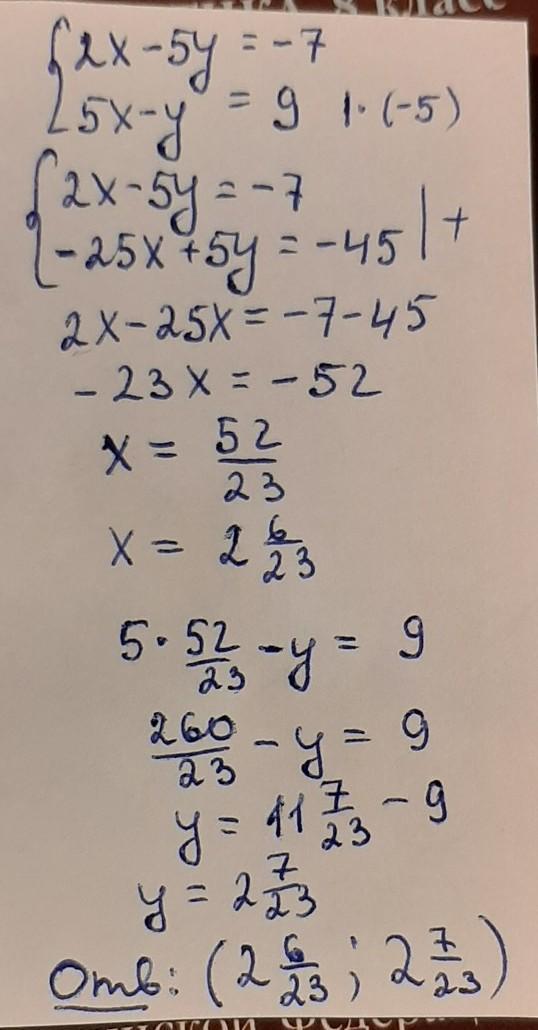 8 класс
{2x-5y = -7
{5x-y = 9 |·(-5)
{2x-5y = -7
{-25x+5y = -45 |+
2x-25x = -7-45
-23x = -52
x = 52/23
x = 2 6/23
5·52/23 -y = 9
260/23 -y = 9
y = 11 7/23 - 9
y = 2 7/23
Отв: (2 6/23; 2 7/23)